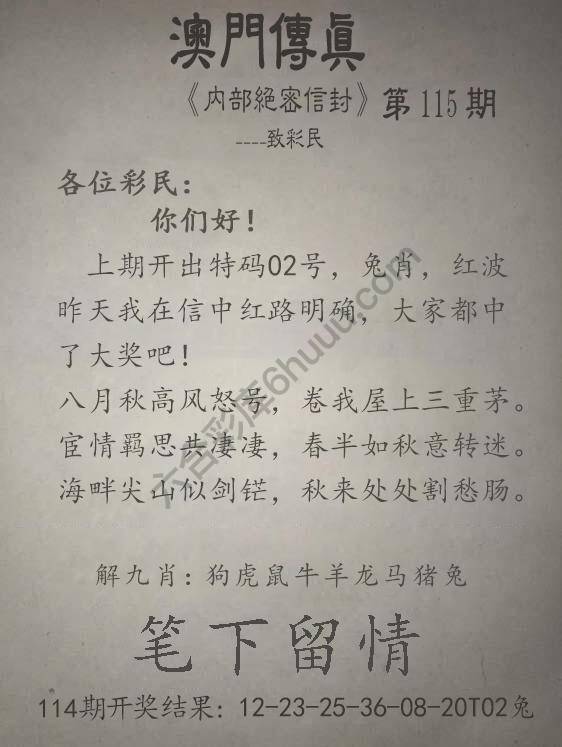 澳門傳真
《内部絕密信封》第115期
----致彩民
各位彩民：
你们好！
上期开出特码02号，兔肖，红波
昨天我在信中红路明确，大家都中
了大奖吧！
八月秋高风怒号，卷我屋上三重茅。
宦情羁思共凄凄，春半如秋意转迷。
海畔尖山似剑铓，秋来处处割愁肠。
解九肖：狗虎鼠牛羊龙马猪兔
笔下留情
114期开奖结果：12-23-25-36-08-20T02兔
六合彩库6huuu.com